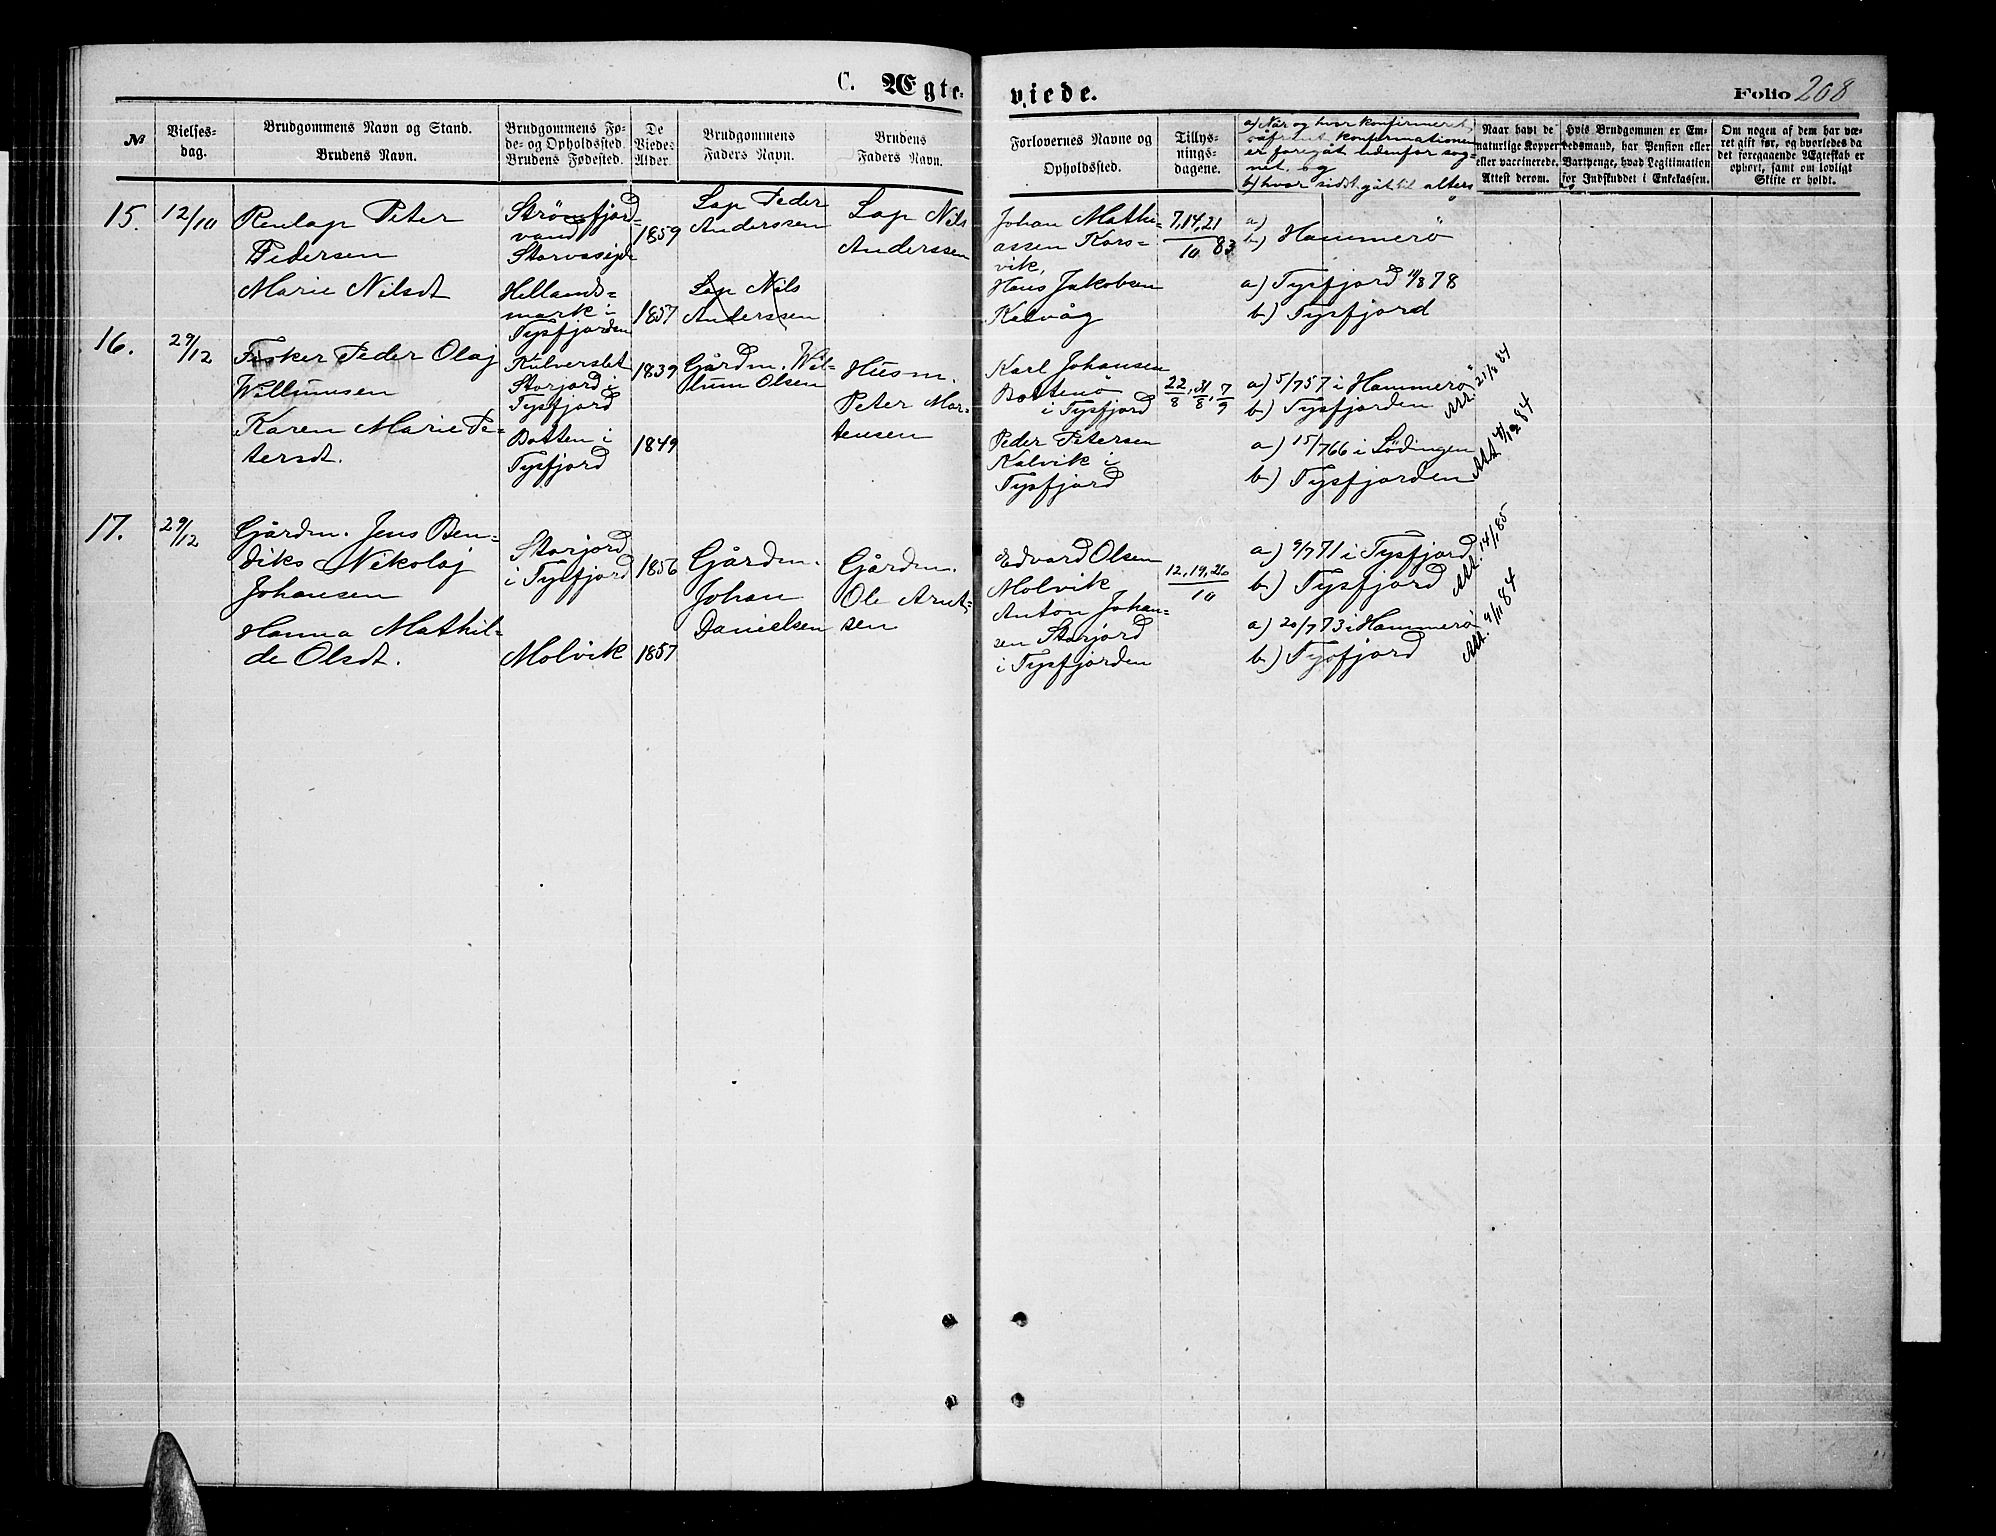 C. Ægte-
viede.
Folio 208
№
Vielses-
dag.
Brudgommens Navn og Stand.
Brudens Navn.
Brudgommens Fø-
de- og Opholdssted.
Brudens Fødested.
De
Viedes
Alder.
Brudgommens
Faders Navn.
Brudens
Faders Navn.
Forlovernes Navne og
Opholdssted.
Tillys-
nings-
dagene.
a) Når og hvor konfirmeret,
såfremt konfirmationen
er foregåt udenfor sog-
net, og
b) hvor sidst gåt til alters
Naar havt de
naturlige Kopper
eller vaccinerede.
Attest derom.
Hvis Brudgommen er Em-
bedsmand, har Pension eller
Vartpenge, hvad Legitimation
for Indskuddet i Enkekassen.
Om nogen af dem har væ-
ret gift før, og hvorledes da
det foregaaende Ægteskab er
ophørt, samt om lovligt
Skifte er holdt.
15.
12/10
Renlap Peter
Pedersen
Marie Nilsdt
Strömfjord-
vand
Hellands-
mark i
Tysfjorden
1859
1857
Lap Peder
Anderssen
Lap Nils
Anderssen
Lap Nils
Anderssen
Johan Mathi-
assen Kors-
vik,
Hans Jakobsen
7, 14, 21
10 83
a)
b) Hammerö
a) Tysfjord 11/8 78
b) Tysfjord
16.
29/12
Fisker Peder Olaj
Willumsen
Karen Marie Pe-
tersdt.
Storjord i
Tysfjord
Botten i
Tysfjord
1839
1849
Gårdm. Wil-
lum Olsen
Husm.
Peter Mor-
tensen
Karl Johansen
i Tysfjord
Peder Petersen
Kalvik i
Tysfjord
22/8, 31/8, 7/9
a) 5/7 57 i Hammerö
b) Tysfjorden
a) 15/7 66 i Lödingen
b) Tysfjorden
17.
29/12
Gårdm. Jens Ben-
diks Nikolaj
Johansen
Hanna Mathil-
de Olsdt.
Storjord
i Tysfjord
Molvik
1856
1857
Gårdm.
Johan
Danielsen
Gårdm.
Ole Arnt-
sen
Edvard Olsen
Molvik
Anton Johan-
sen Storjord
i Tysfjorden
12, 19, 26
10
a) 9/7 71 i Tysfjord
b) Tysfjord
a) 20/7 73 i Hammerö
b) Tysfjord
Att. 14/1 85
Att. 9/11 84